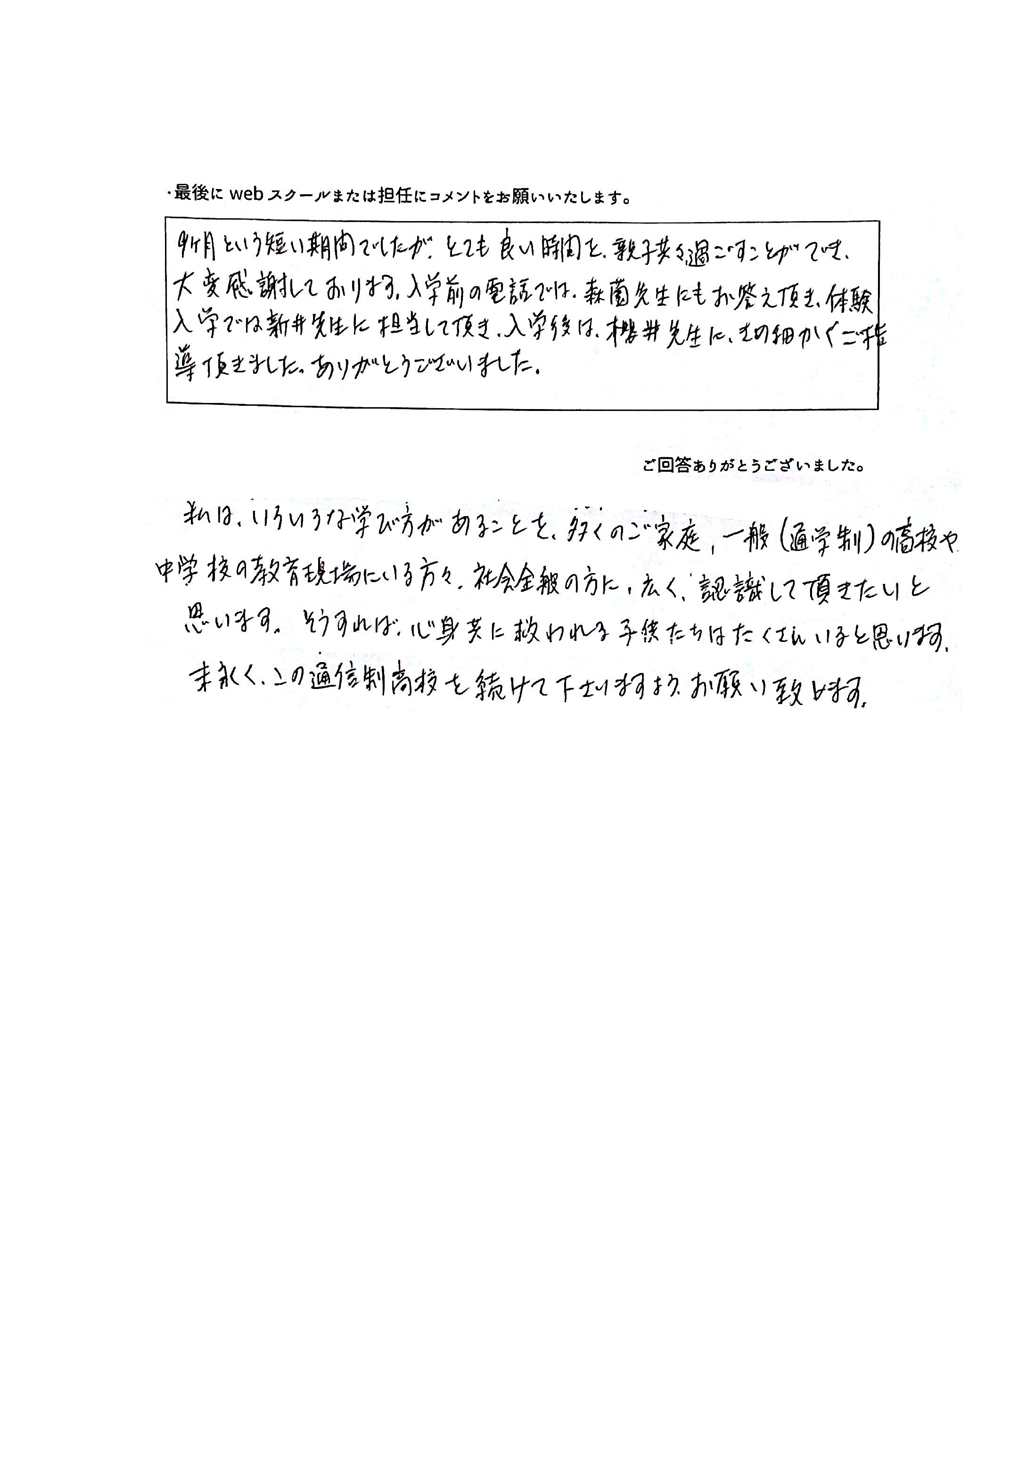 ・最後に web スクールまたは担任にコメントをお願いいたします。
9ヶ月という短い期間でしたが、とても良い時間を、親子共々過ごすことができ、
大変感謝しております。入学前の電話では、森薗先生にもお答え頂き、体験
入学では新井先生に担当して頂き、入学後は、櫻井先生に、きめ細かくご指
導頂きました。ありがとうございました。
ご回答ありがとうございました。
私は、いろいろな学び方があることを、多くのご家庭、一般(通学制)の高校や
中学校の教育現場にいる方々、社会全般の方に、広く、認識して頂きたいと
思います。そうすれば、心身共に救われる子供たちはたくさんいると思います。
末永く、この通信制高校を続けて下さいますよう、お願い致します。